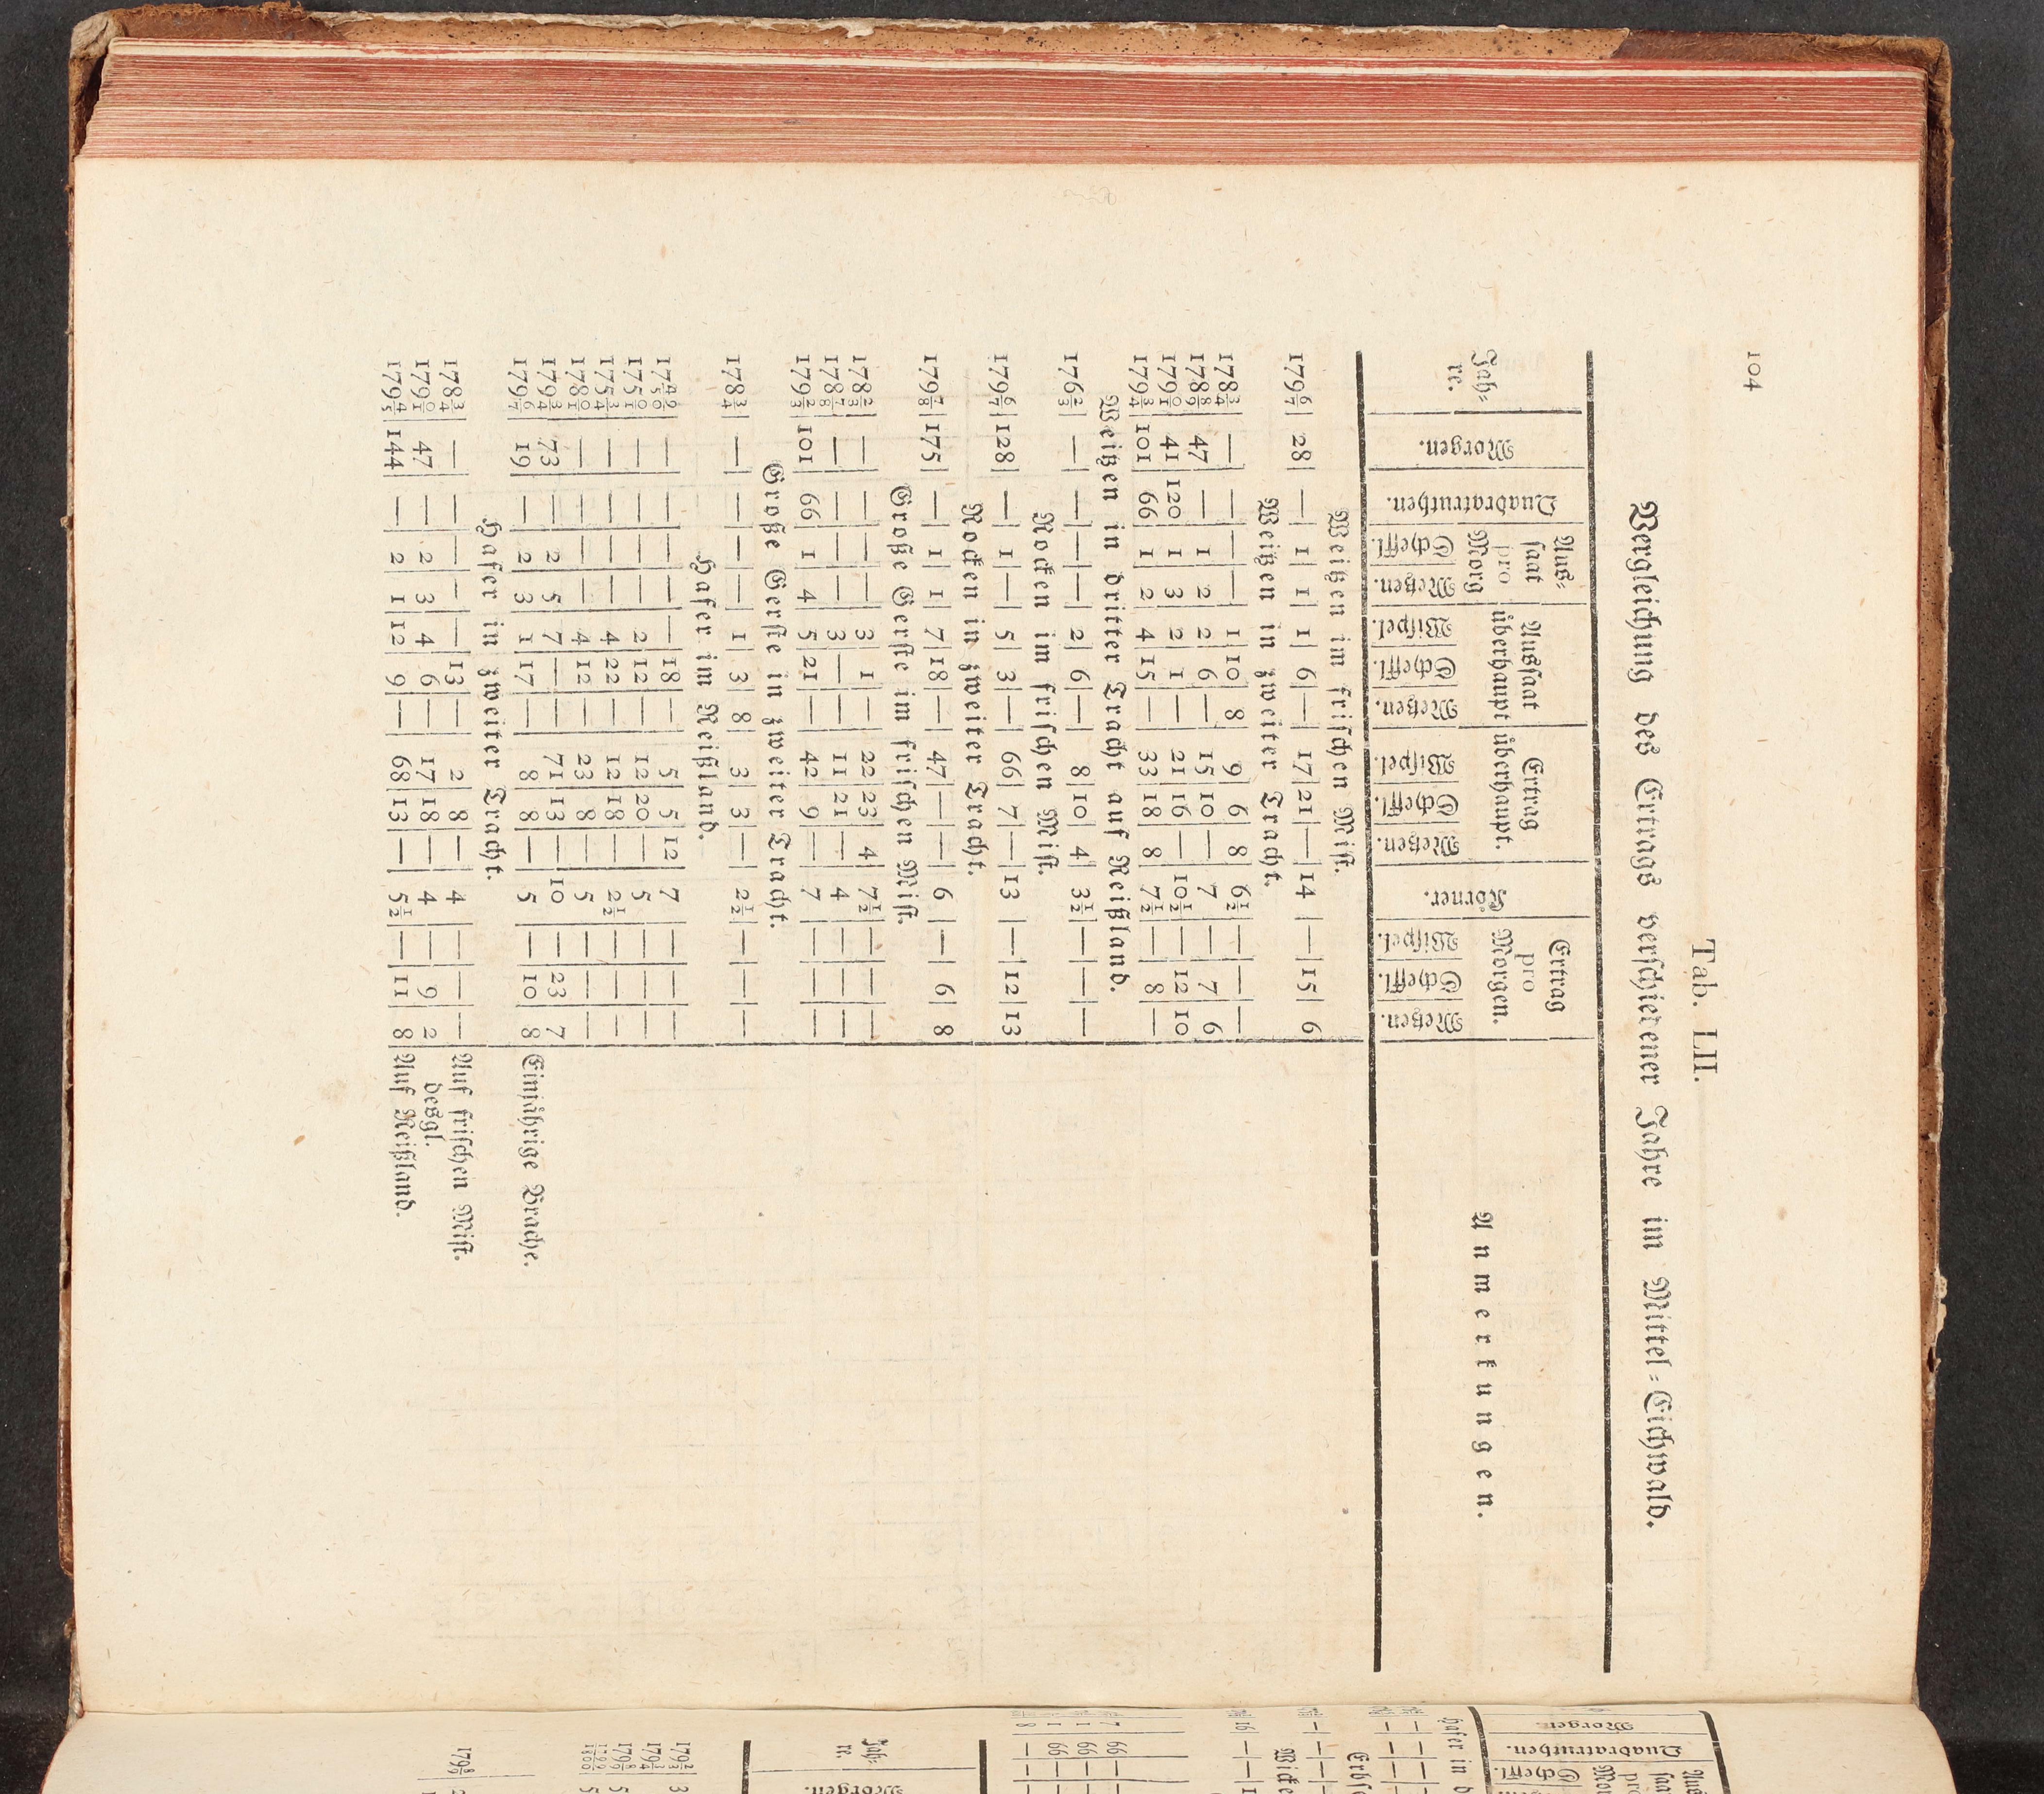 104
Tab. LII.
Vergleichung des Ertrags verschiedener Jahre im Mittel-Eichwald.
Jahre. | Morgen. | Quadratruthen. | Aussaat pro Morg | Aussaat überhaupt | Ertrag überhaupt. | Körner. | Ertrag pro Morgen. | Anmerkungen.
Scheffl. | Metzen. | Wispel. | Scheffl. | Metzen. | Wispel. | Scheffl. | Metzen. | Wispel. | Scheffl. | Metzen.
Weitzen im frischen Mist.
179 6/7 | 28 | — | 1 | 1 | 1 | 6 | — | 17 | 21 | — | 14 | — | 15 | 6
Weitzen in zweiter Tracht.
178 3/4 | — | — | — | — | 1 | 10 | 8 | 9 | 6 | 8 | 6 1/2 | — | — | —
178 8/9 | 47 | — | 1 | 2 | 2 | 6 | — | 15 | 10 | — | 7 | — | 7 | 6
179 0/1 | 41 | 120 | 1 | 3 | 2 | 1 | — | 21 | 16 | — | 10 1/2 | — | 12 | 10
179 3/4 | 101 | 66 | 1 | 2 | 4 | 15 | — | 33 | 18 | 8 | 7 1/2 | — | 8 | —
Weitzen in dritter Tracht auf Reißland.
176 2/3 | — | — | — | — | 2 | 6 | — | 8 | 10 | 4 | 3 1/2 | — | — | —
Rocken im frischen Mist.
179 6/7 | 128 | — | 1 | — | 5 | 3 | — | 66 | 7 | — | 13 | — | 12 | 13
Rocken in zweiter Tracht.
179 7/8 | 175 | — | 1 | 1 | 7 | 18 | — | 47 | — | — | 6 | — | 6 | 8
Große Gerste im frischen Mist.
178 2/3 | — | — | — | — | 3 | 1 | — | 22 | 23 | 4 | 7 1/2 | — | — | —
178 7/8 | — | — | — | — | 3 | — | — | 11 | 21 | — | 4 | — | — | —
179 2/3 | 101 | 66 | 1 | 4 | 5 | 21 | — | 42 | 9 | — | 7 | — | — | —
Große Gerste in zweiter Tracht.
178 3/4 | — | — | — | — | 1 | 3 | 8 | 3 | 3 | — | 2 1/2 | — | — | —
Hafer im Reißland.
17 49/50 | — | — | — | — | — | 18 | — | 5 | 5 | 12 | 7 | — | — | —
175 0/1 | — | — | — | — | 2 | 12 | — | 12 | 20 | — | 5 | — | — | —
175 3/4 | — | — | — | — | 4 | 22 | — | 12 | 18 | — | 2 1/2 | — | — | —
178 0/1 | — | — | — | — | 4 | 12 | — | 23 | 8 | — | 5 | — | — | —
179 3/4 | 73 | — | 2 | 5 | 7 | — | — | 71 | 13 | — | 10 | — | 23 | 7
179 6/7 | 19 | — | 2 | 3 | 1 | 17 | — | 8 | 8 | — | 5 | — | 10 | 8 | Einjährige Brache.
Hafer in zweiter Tracht.
178 3/4 | — | — | — | — | — | 13 | — | 2 | 8 | — | 4 | — | — | — | Auf frischen Mist.
179 0/1 | 47 | — | 2 | 3 | 4 | 6 | — | 17 | 18 | — | 4 | — | 9 | 2 | desgl.
179 4/5 | 144 | — | 2 | 1 | 12 | 9 | — | 68 | 13 | — | 5 1/2 | — | 11 | 8 | Auf Reißland.